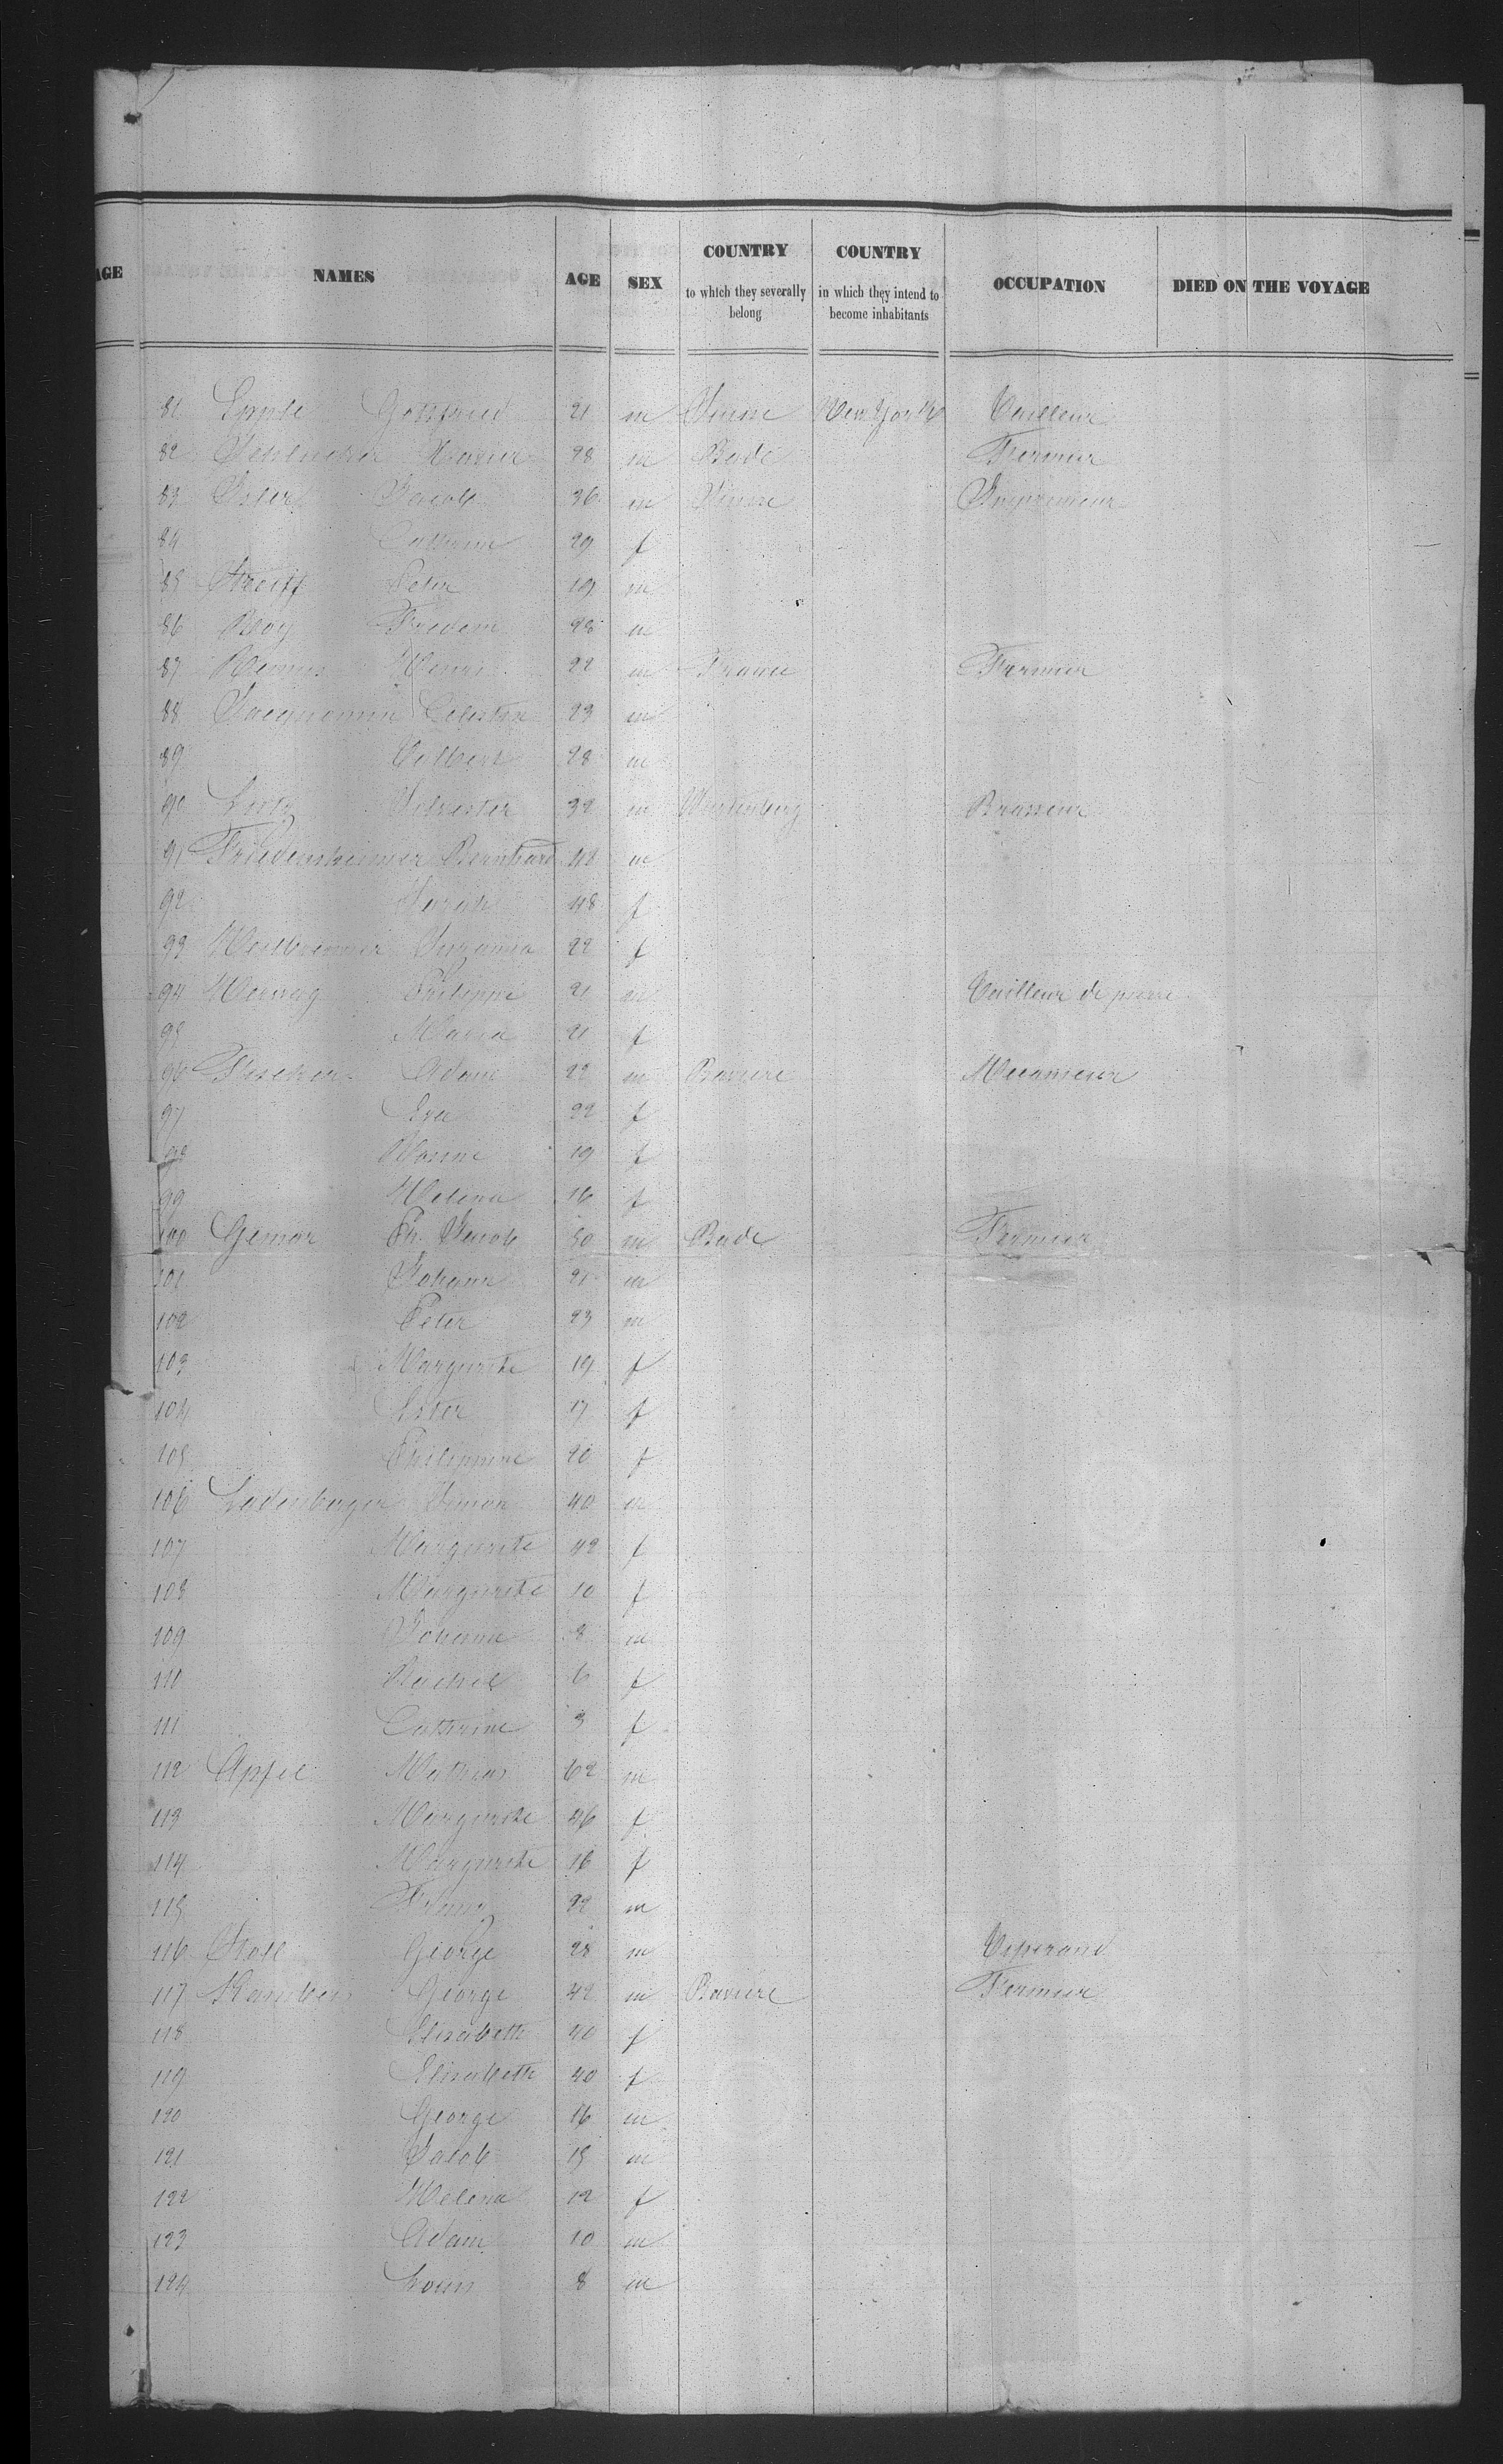 AGE
NAMES AGE SEX COUNTRY to which they severally belong COUNTRY in which they intend to become inhabitants OCCUPATION DIED ON THE VOYAGE
81 Gottfried 21 m Suisse New York Tailleur
82 Xavier 28 m Bade Fermier
83 Jacob 36 m Suisse
84 Catherine 29 f
85 Streiff Peter 19 m
86 28 m
87 Henri 22 m France Fermier
88 Jacquemin Celestin 23 m
89 28 m
90 Silvester 32 m Würtemberg Brasseur
91 Bernhard 48 m
92 Sarah 48 f
93 Suzanna 22 f
94 Philippe 21 m Tailleur de pierre
95 Maria 21 f
96 Fischer Adam 22 m Baviere Mecanicien
97 Eva 22 f
98 19 f
99 Helena 16 f
100 Gemar Ph. Jacob 50 m Bade Fermier
101 Johann 21 m
102 Peter 23 m
103 Margurithe 19 f
104 Ester 17 f
105 Philippine 20 f
106 Ladenburger Simon 40 m
107 Margurite 42 f
108 Margurite 10 f
109 Johann 8 m
110 Rachel 6 f
111 Catherine 3 f
112 Apfel Mathias 62 m
113 Margurithe 46 f
114 Margurithe 16 f
115 Franz 22 m
116 Stoll George 28 m
117 George 42 m Baviere Fermier
118 Elisabeth 40 f
119 Elisabeth 40 f
120 George 16 m
121 Jacob 15 m
122 Helena 12 f
123 Adam 10 m
124 Louis 8 m